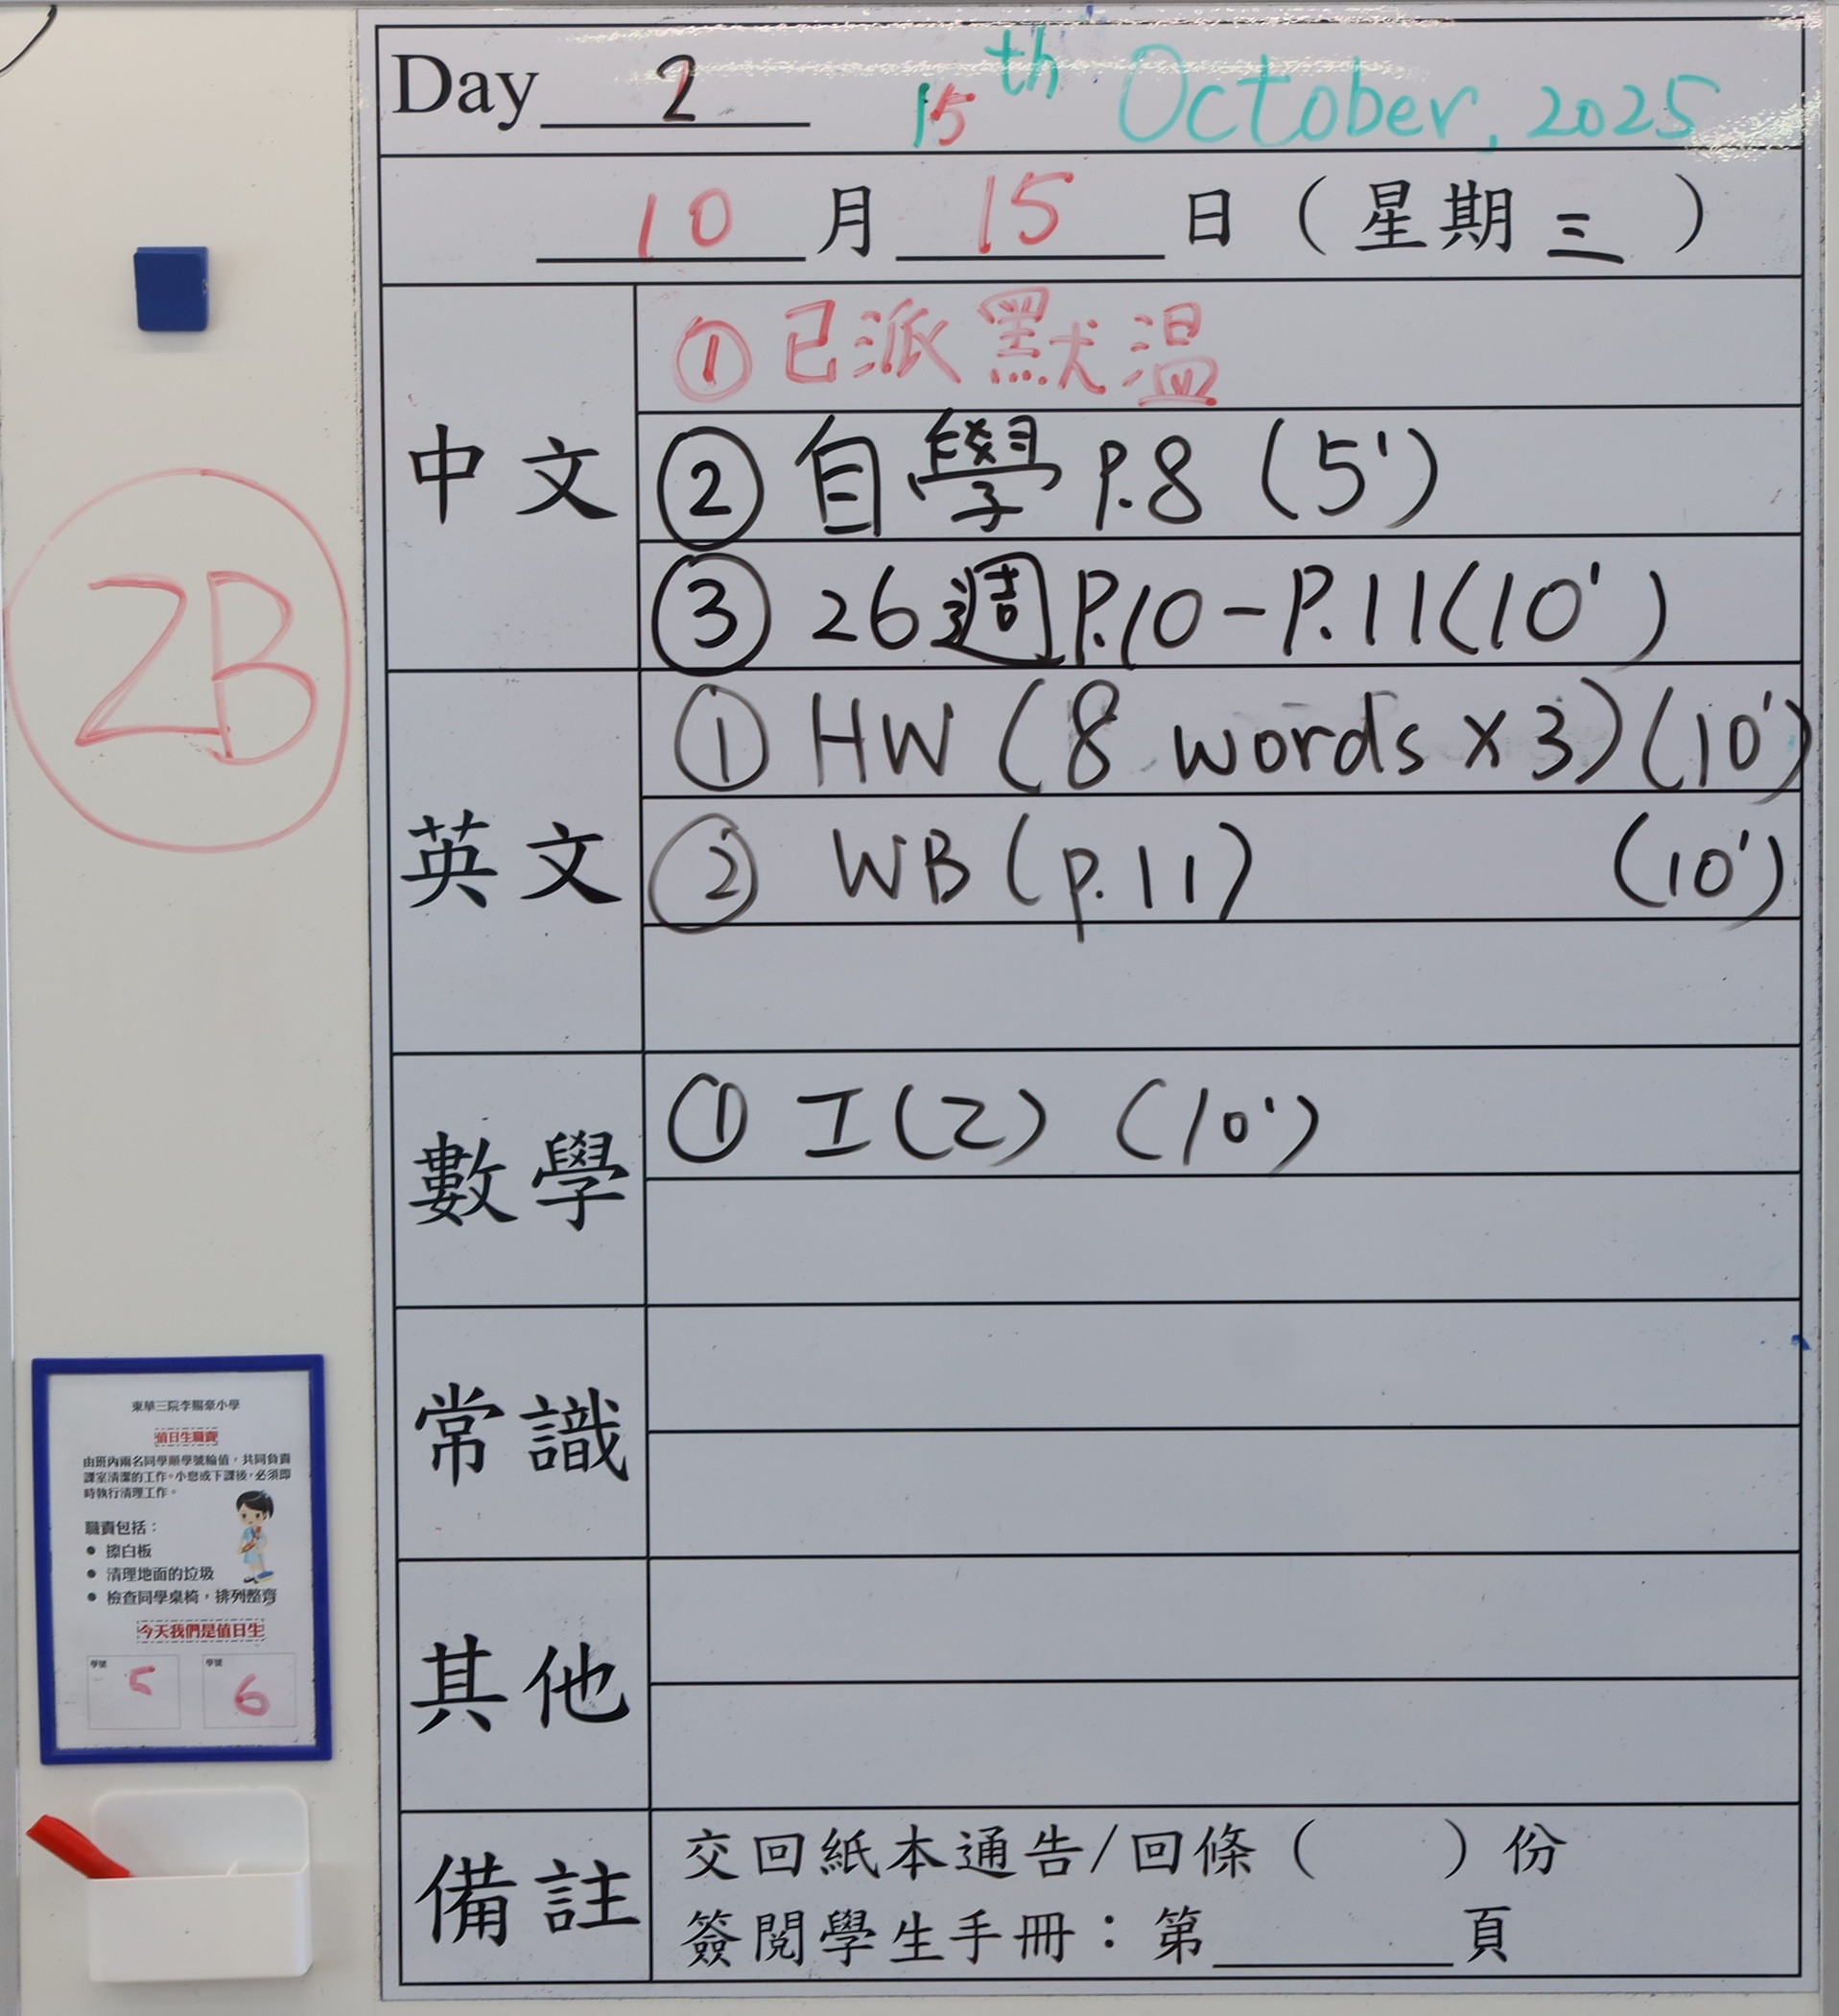 Day 2 15th October, 2025
10月15日（星期三）
中文
①已派默溫
②自學 P.8 (5')
③26週P.10-P.11(10')
英文
①HW (8 words x 3)(10')
②WB (p.11) (10')
數學
①工(2) (10')
常識
其他
備註
交回紙本通告/回條（ ）份
簽閱學生手冊：第______頁
2B
東華三院李賜豪小學
值日生職責
由班內兩名同學順學號輪值，共同負責
課室清潔的工作。小息或下課後，必須即
時執行清理工作。
職責包括：
● 擦白板
● 清理地面的垃圾
● 檢查同學桌椅，排列整齊
今天我們是值日生
學號 5 學號 6